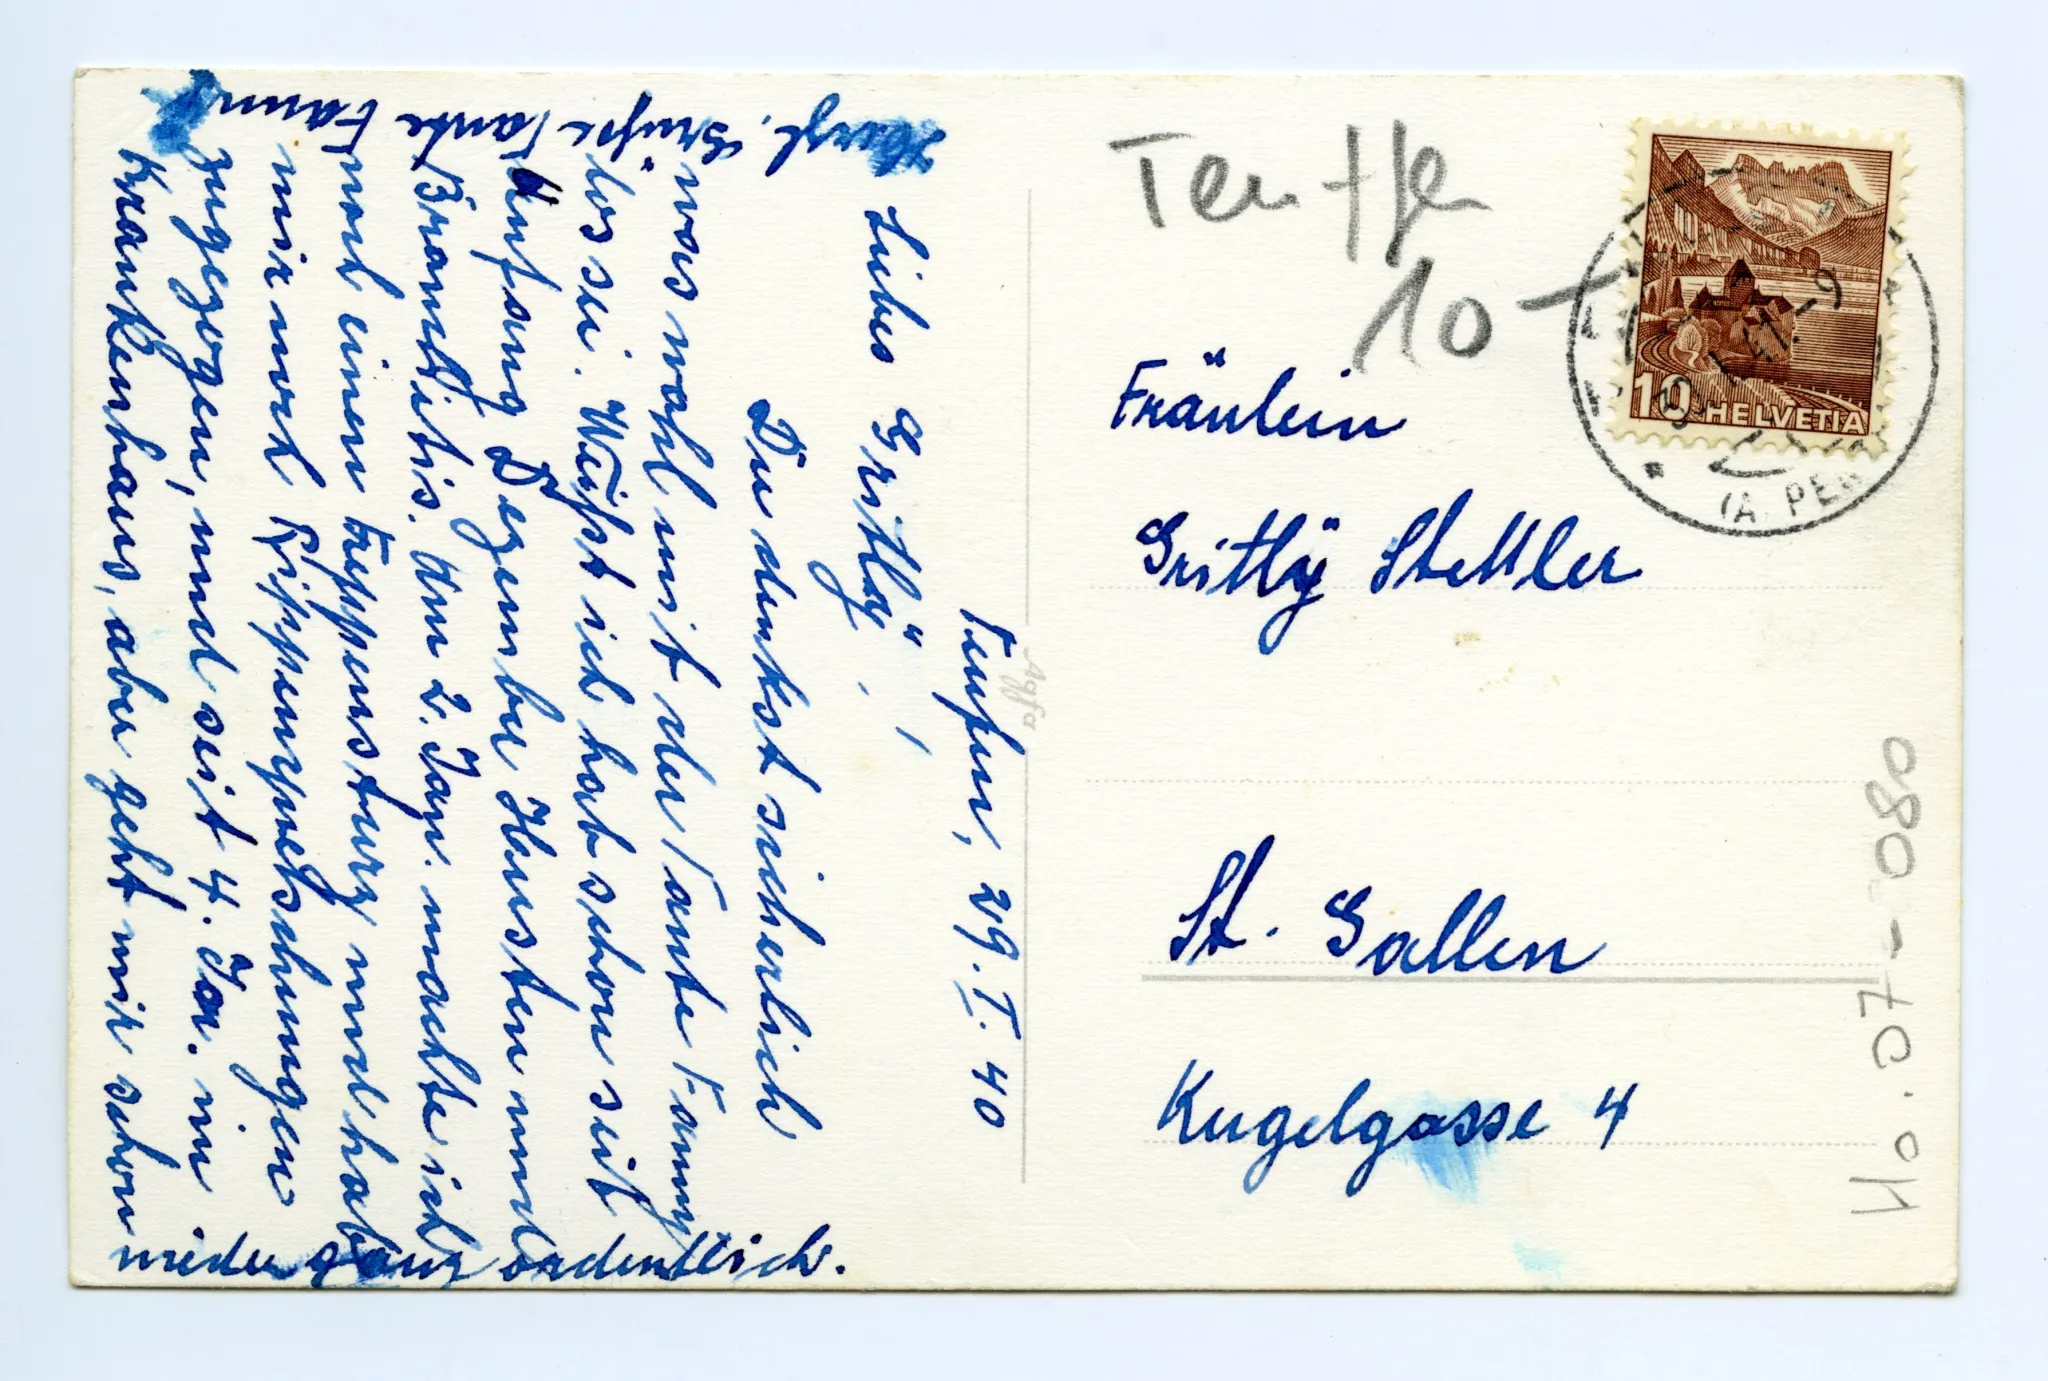 Teufen, 29. I. 40
Liebes Gritly,
Du denkst sicherlich
was wohl mit der Tante Fanny
los sei. Weißt ich hab schon seit
Anfang Dezember Husten und
Bronchitis. Am 2. Jan. machte ich
noch einen Treppensturz und hab
mir noch Rippenquetschungen
zugezogen, und seit 4. Jan. im
Krankenhaus, aber geht mir schon
wieder ganz ordentlich.
Herzl. Grüße Tante Fanny
Agfa
Teuffen
10-
10 HELVETIA
(A. PE
Fräulein
Gritly Stettler
St. Gallen
Kugelgasse 4